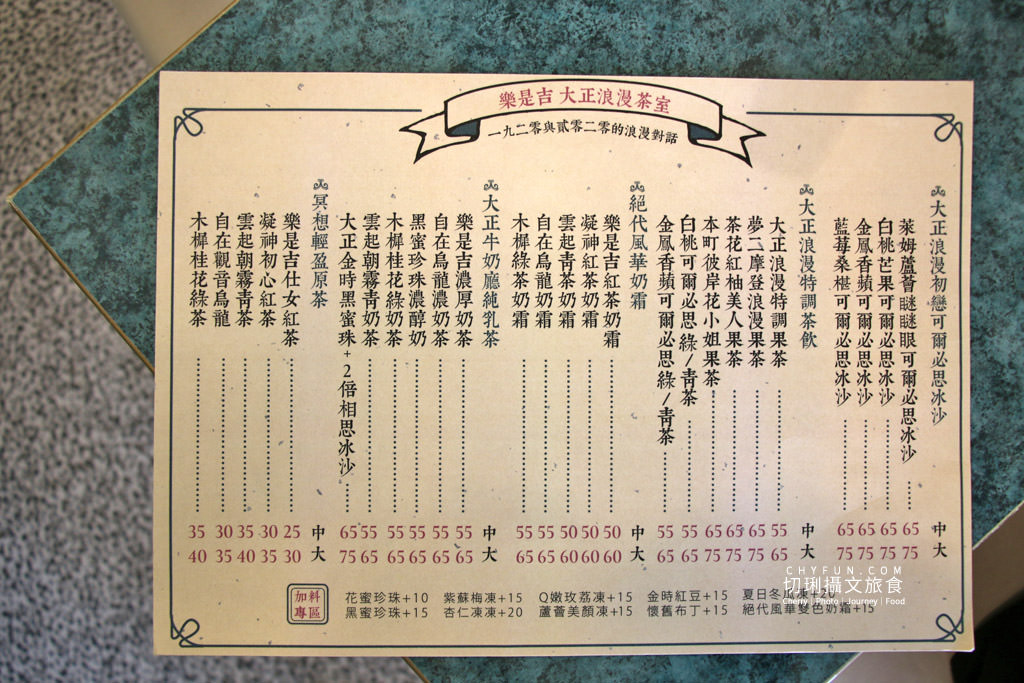 樂是吉 大正浪漫茶室
一九二零與貳零二零的浪漫對話
大正浪漫初戀可爾必思冰沙 中 大
萊姆蘆薈瞇瞇眼可爾必思冰沙 65 75
白桃芒果可爾必思冰沙 65 75
金鳳香蘋可爾必思冰沙 65 75
藍莓桑椹可爾必思冰沙 65 75
大正浪漫特調茶飲 中 大
大正浪漫特調果茶 55 65
夢二摩登浪漫果茶 65 75
茶花紅柚美人果茶 65 75
本町彼岸花小姐果茶 65 75
白桃可爾必思綠/青茶 55 65
金鳳香蘋可爾必思綠/青茶 55 65
絕代風華奶霜 中 大
樂是吉紅茶奶霜 50 60
凝神紅茶奶霜 50 60
雲起青茶奶霜 50 60
自在烏龍奶霜 55 65
木樨綠茶奶霜 55 65
大正牛奶廳純乳茶 中 大
樂是吉濃厚奶茶 55 65
自在烏龍濃奶茶 55 65
黑蜜珍珠濃醇奶 55 65
木樨桂花綠奶茶 55 65
雲起朝霧青奶茶 55 65
大正金時黑蜜珠+2倍相思冰沙 65 75
冥想輕盈原茶 中 大
樂是吉仕女紅茶 25 30
凝神初心紅茶 30 35
雲起朝霧青茶 35 40
自在觀音烏龍 30 35
木樨桂花綠茶 35 40
加料專區
花蜜珍珠+10 紫蘇梅凍+15 Q嫩玫荔凍+15 金時紅豆+15 夏日冬瓜凍+20
黑蜜珍珠+15 杏仁凍凍+20 蘆薈美顏凍+15 懷舊布丁+15 絕代風華雙色奶霜+15
CHYFUN.COM
切琍攝文旅食
Cherry | Photo | Journey | Food